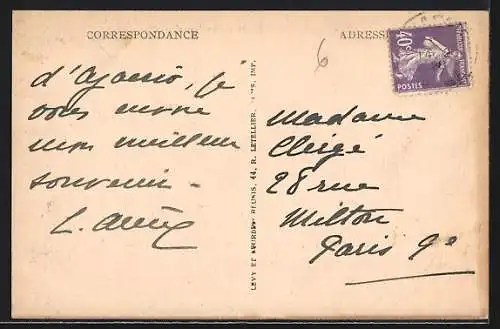 CORRESPONDANCE
ADRESSE
6
40c
POSTES
d'Ajaccio, je
vous envoie
mon meilleur
souvenir -
L.
Madame
Clergé
28 rue
Milton
Paris 9e
LEVY ET NEURDEIN REUNIS, 44, R. LETELLIER, PARIS, IMP.